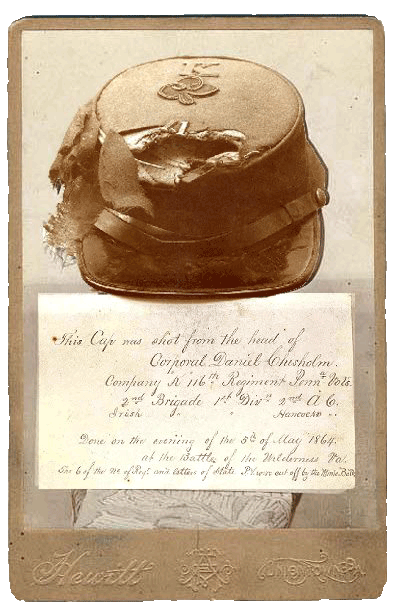 K
This Cap was shot from the head of
Corporal Daniel Chisholm.
Company K 116th Regiment Penna Vols.
2nd Brigade 1st Divs 2nd A C.
Irish " " Hancocks "
Done on the evening of the 5th of May 1864.
at the Battle of the Wilderness Va.
The 6 of the No of Regt and letters of State P were cut off by the Minie Ball
Hewitt
UNIONTOWN, PA.